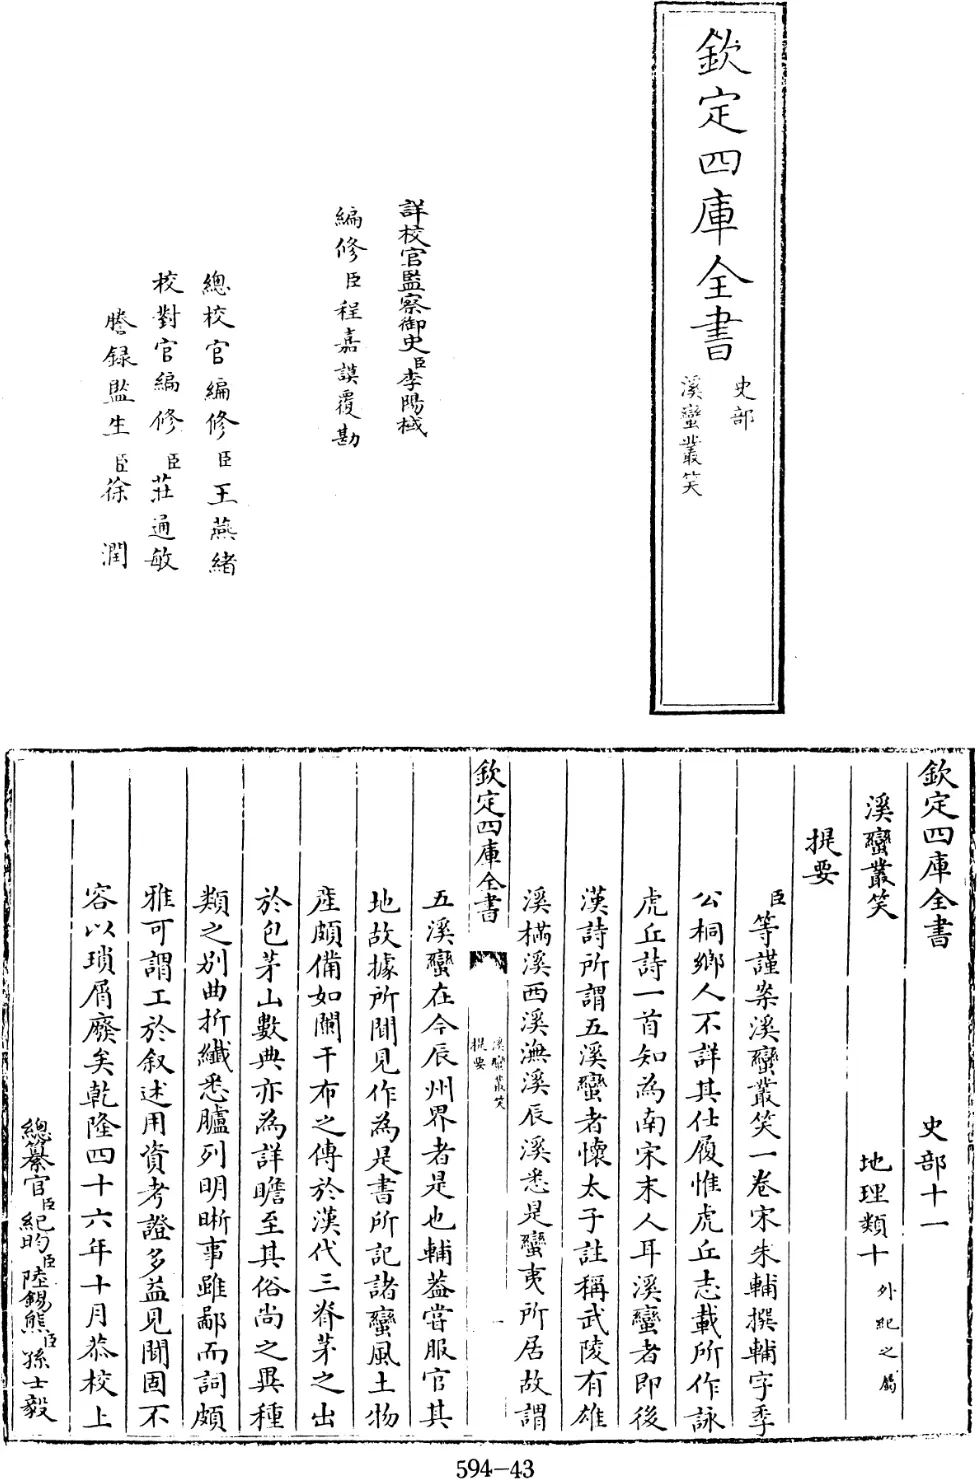 欽定四庫全書
史部
溪蠻叢笑
詳校官監察御史臣李陽棫
編修臣程嘉謨覆勘
總校官編修臣王燕緒
校對官編修臣莊通敏
謄録監生臣徐潤
欽定四庫全書 史部十一
溪蠻叢笑 地理類十 外紀之屬
提要
臣等謹案溪蠻叢笑一卷宋朱輔撰輔字季
公桐鄉人不詳其仕履惟虎丘志載所作詠
虎丘詩一首知為南宋末人耳溪蠻者即後
漢詩所謂五溪蠻者懷太子註稱武陵有雄
溪樠溪酉溪潕溪辰溪悉是蠻夷所居故謂
欽定四庫全書
溪蠻叢笑
提要
一
五溪蠻在今辰州界者是也輔葢嘗服官其
地故據所聞見作為是書所記諸蠻風土物
產頗備如闌干布之傳於漢代三脊茅之出
於包茅山數典亦為詳瞻至其俗尚之異種
類之别曲折纖悉臚列明晰事雖鄙而詞頗
雅可謂工於叙述用資考證多益見聞固不
容以瑣屑廢矣乾隆四十六年十月恭校上
總纂官臣紀昀臣陸錫熊臣孫士毅
594-43